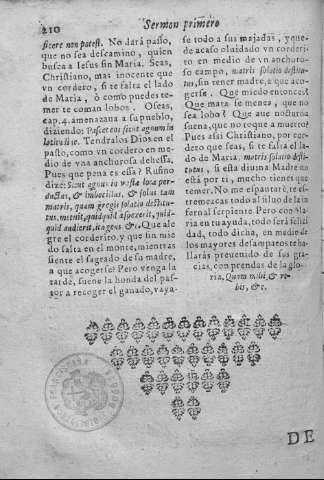 210
Sermon primero
ficere non potest. No darà passo,
que no sea descamino, quien
busca a Iesus sin Maria. Seas,
Christiano, mas inocente que
vn cordero, si te falta el lado
de Maria, ò como puedes te-
mer te coman lobos. Oseas,
cap. 4. amenazaua a su pueblo,
diziendo: Pascet eos sicut agnum in
latitudine. Tendralos Dios en el
pasto, como vn cordero en me-
dio de vna anchurosa dehessa.
Pues que pena es essa? Rufino
dize: Sicut agnus in vasta loca per-
ductus, & imbecillus, & solus tam
matris, quam gregis solatio destitu-
tus, metuit, quidquid aspexerit, quid-
quid audierit, itagens &c. Que ale
gre el corderito, y que sin mie
do salta en el monte, mientras
siente el sagrado de su madre,
a que acogerse! Pero venga la
tarde, suene la honda del pas-
tor a recoger el ganado, vaya-
se todo a sus majadas, y que-
de acaso oluidado vn corderi-
to en medio de vn anchuro-
so campo, matris solatio destitu-
tus, sin tener madre, a que aco-
gerse. Que miedo entonces!
Que mata se menea, que no
sea lobo! Que no tope muerto?
Pues assi Christiano, por cor-
dero que seas, si te falta el la
do de Maria. matris solatio desti-
tutus, si esta diuina Madre no
està por ti, mucho tienes que
temer. No me espantarè, te es-
tremezcas todo al siluo de la in
fernal serpiente Pero con Ma-
ria en tu ayuda, todo serà felici
dad, todo dicha, en medio de
los mayores desamparos te ha-
llaràs preuenido de sus gra-
cias, con prendas de la glo-
ria, Quam mihi, & vo-
bis, &c.
DE